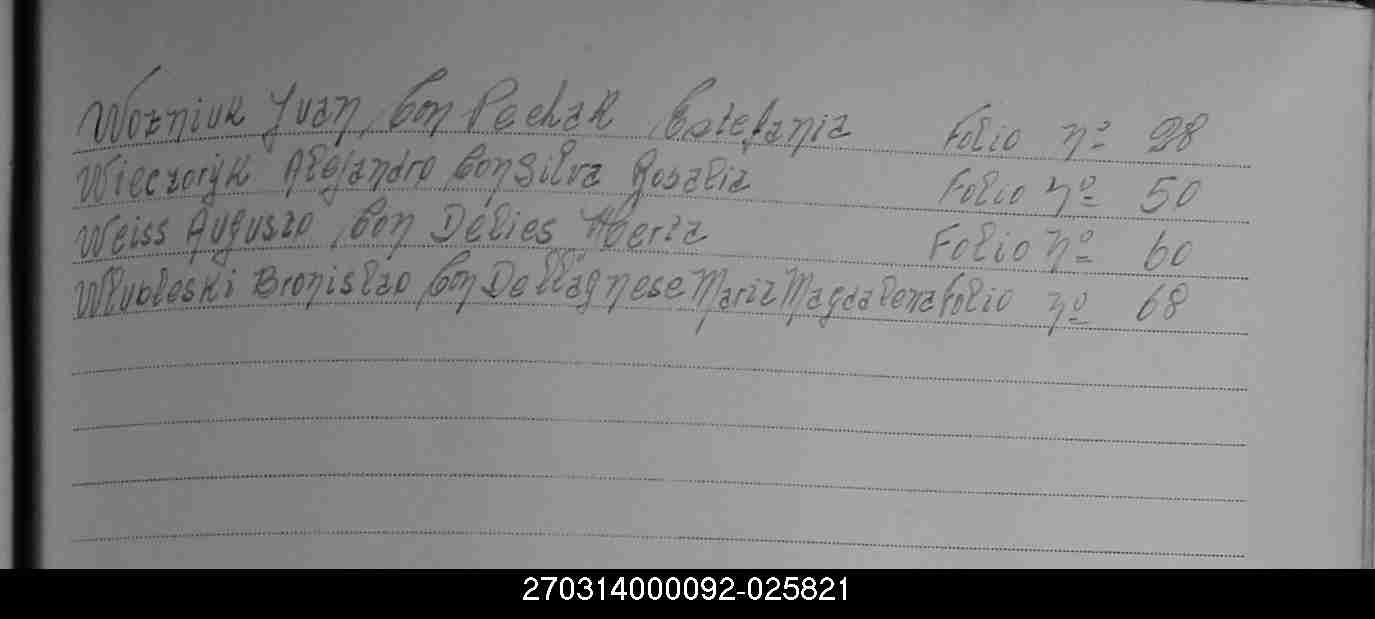 Wozniuk Juan, Con Pechak Estefania Folio nº 28
Wieczoryk Alejandro Con Silva Rosalia Folio nº 50
Weiss Augusto, Con Delies Folio nº 60
Wlubleski Bronislao Con Dellagnese Maria Magdalena Folio nº 68
270314000092-025821